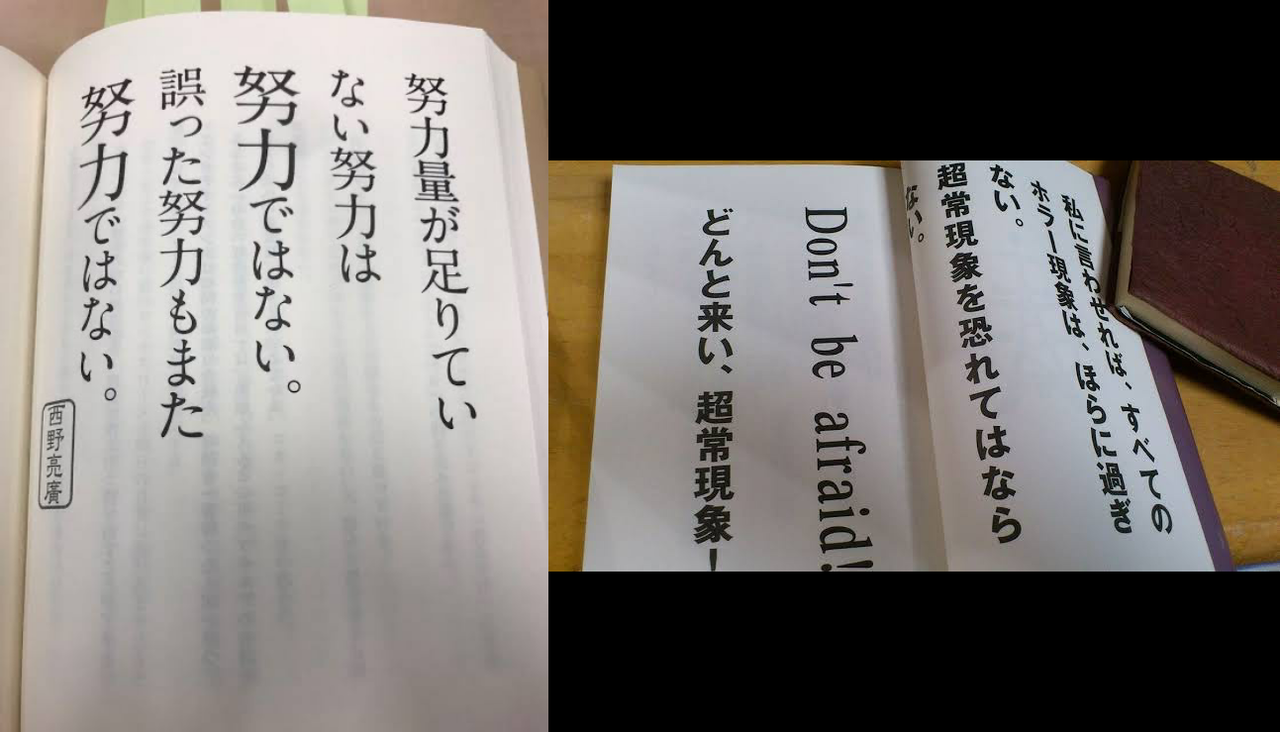 努力量が足りてい
ない努力は
努力ではない。
誤った努力もまた
努力ではない。
西野亮廣
私に言わせれば、すべての
ホラー現象は、ほらに過ぎ
ない。
超常現象を恐れてはなら
ない。
Don't be afraid!
どんと来い、超常現象！